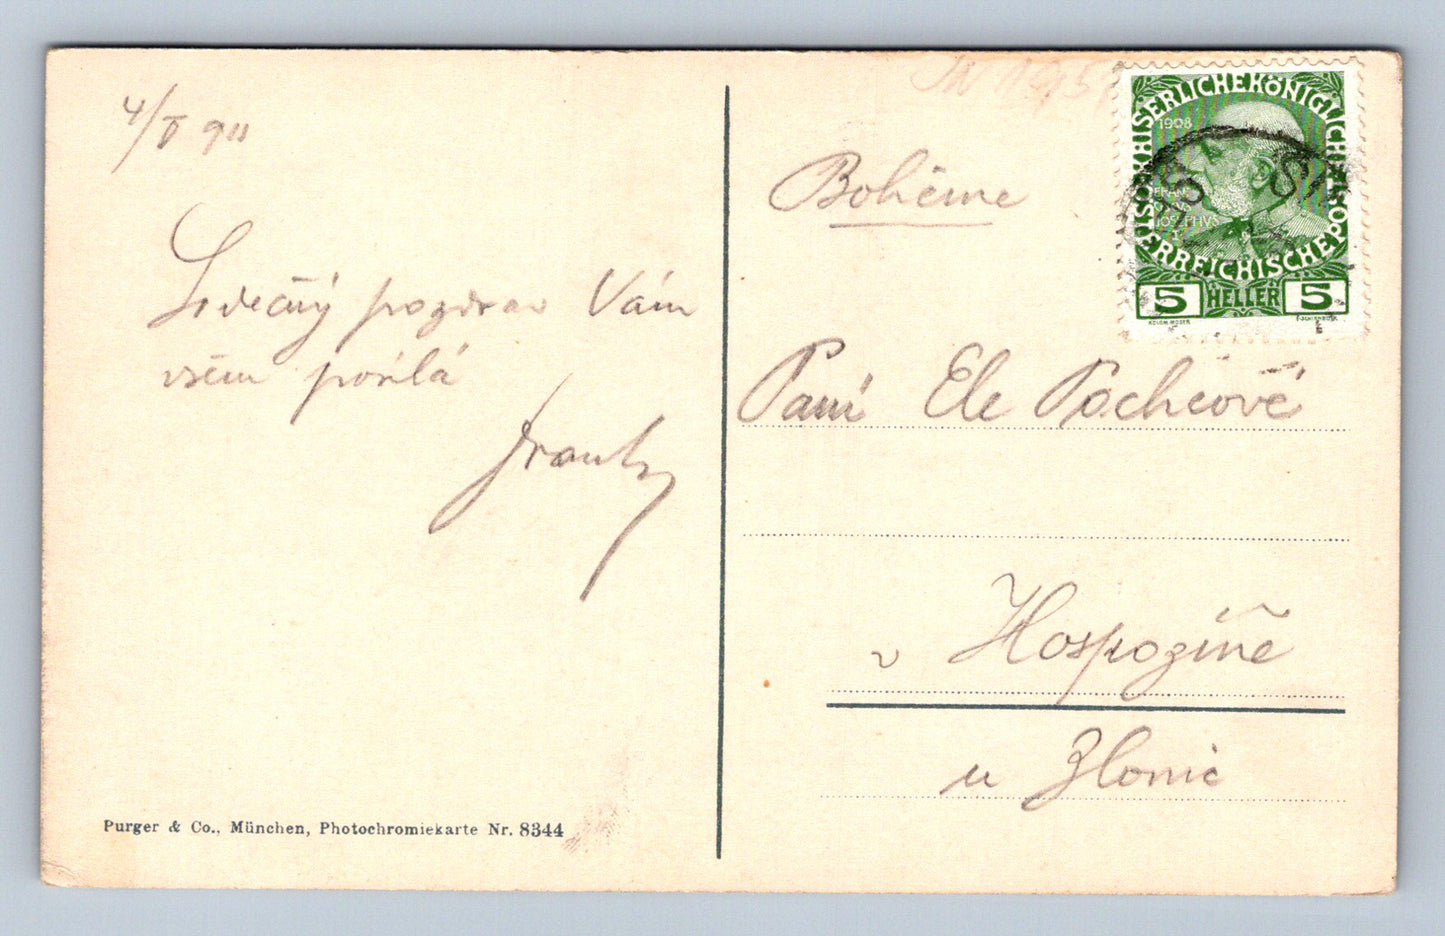 4/V 911
Srdečný pozdrav Vám
všem posílá
Purger & Co., München, Photochromiekarte Nr. 8344
Bohême
KAISERLICHEKÖNIGLICHE
ÖSTERREICHISCHEPOST
1908
FRANC
IOSEPHVS
I
5 HELLER 5
KOLOM. MOSER
F. SCHIRNBÖCK
Paní Ele Pochcové
v Hospozíně
u Zlonic